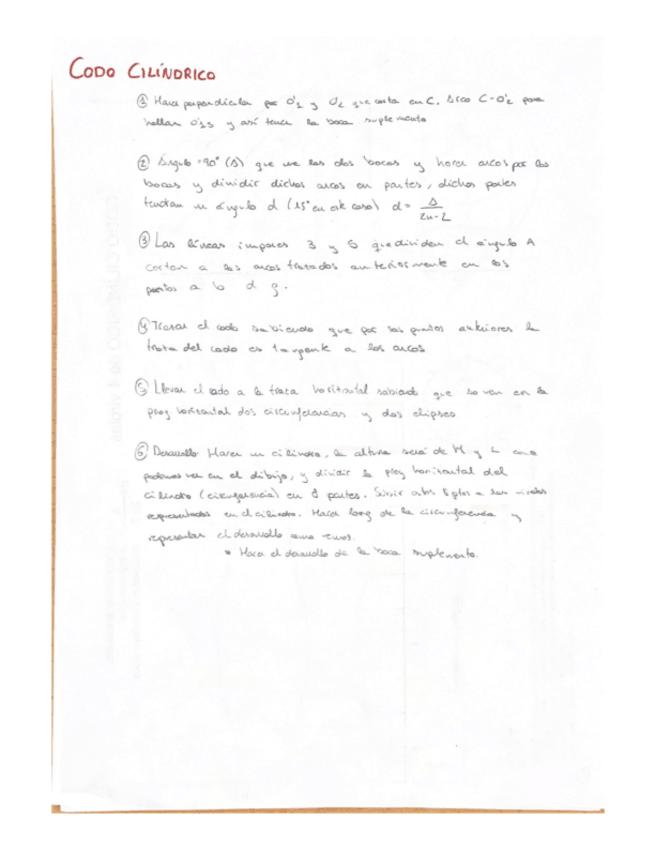 CODO CILÍNDRICO
① Hacer perpendicular por O'1 y O2 que corta en C. Arco C-O'2 para
hallar O'1s y así tener la boca suplemento
② Ángulo =90° (A) que une las dos bocas y hacer arcos por las
bocas y dividir dichos arcos en partes, dichas partes
tendrán un ángulo d (15° en este caso) d= A/2n-2
③ Las líneas impares 3 y 5 que dividen el ángulo A
cortan a los arcos trazados anteriormente en los
puntos a b d g.
④ Trazar el codo sabiendo que por los puntos anteriores la
traza del codo es tangente a los arcos
⑤ Llevar el codo a la traza horizontal sabiendo que se ven en la
proy horizontal dos circunferencias y dos elipses
⑥ Desarrollo Hacer un cilindro, la altura será de M y L como
podemos ver en el dibujo, y dividir la proy horizontal del
cilindro (circunferencia) en 8 partes. Subir estos 8 ptos a los niveles
representados en el cilindro. Hacer long de la circunferencia y
representar el desarrollo
* Hacer el desarrollo de la boca suplemento.